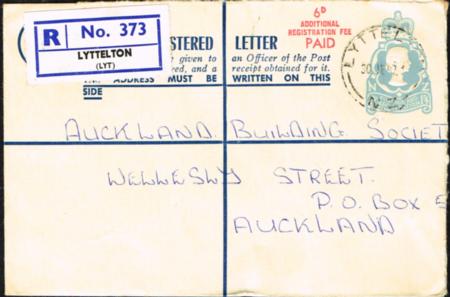 R No. 373
LYTTELTON
(LYT)
STERED LETTER
6D
ADDITIONAL
REGISTRATION FEE
PAID
given to an Officer of the Post
ered, and a receipt obtained for it.
ADDRESS MUST BE WRITTEN ON THIS
SIDE
LYTTEL
N.Z.
AUCKLAND BUILDING SOCIET
WELLESLY STREET.
P.O. BOX 5
AUCKLAND